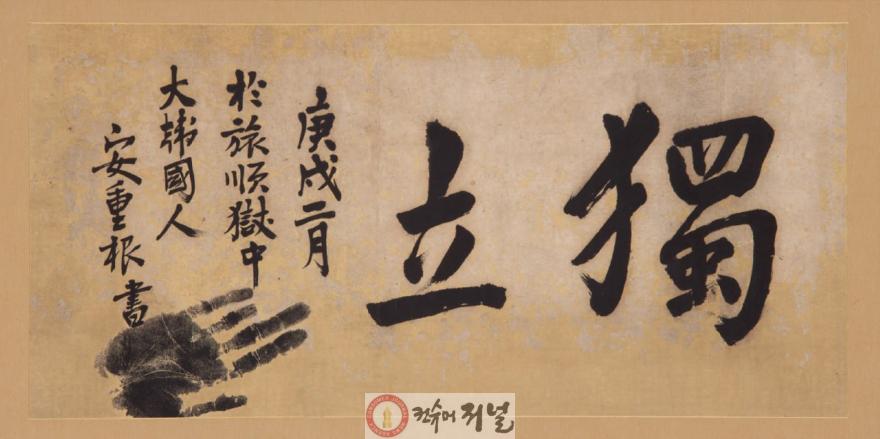 獨立
庚戌二月
於旅順獄中
大韓國人
安重根書
컨슈머 저널